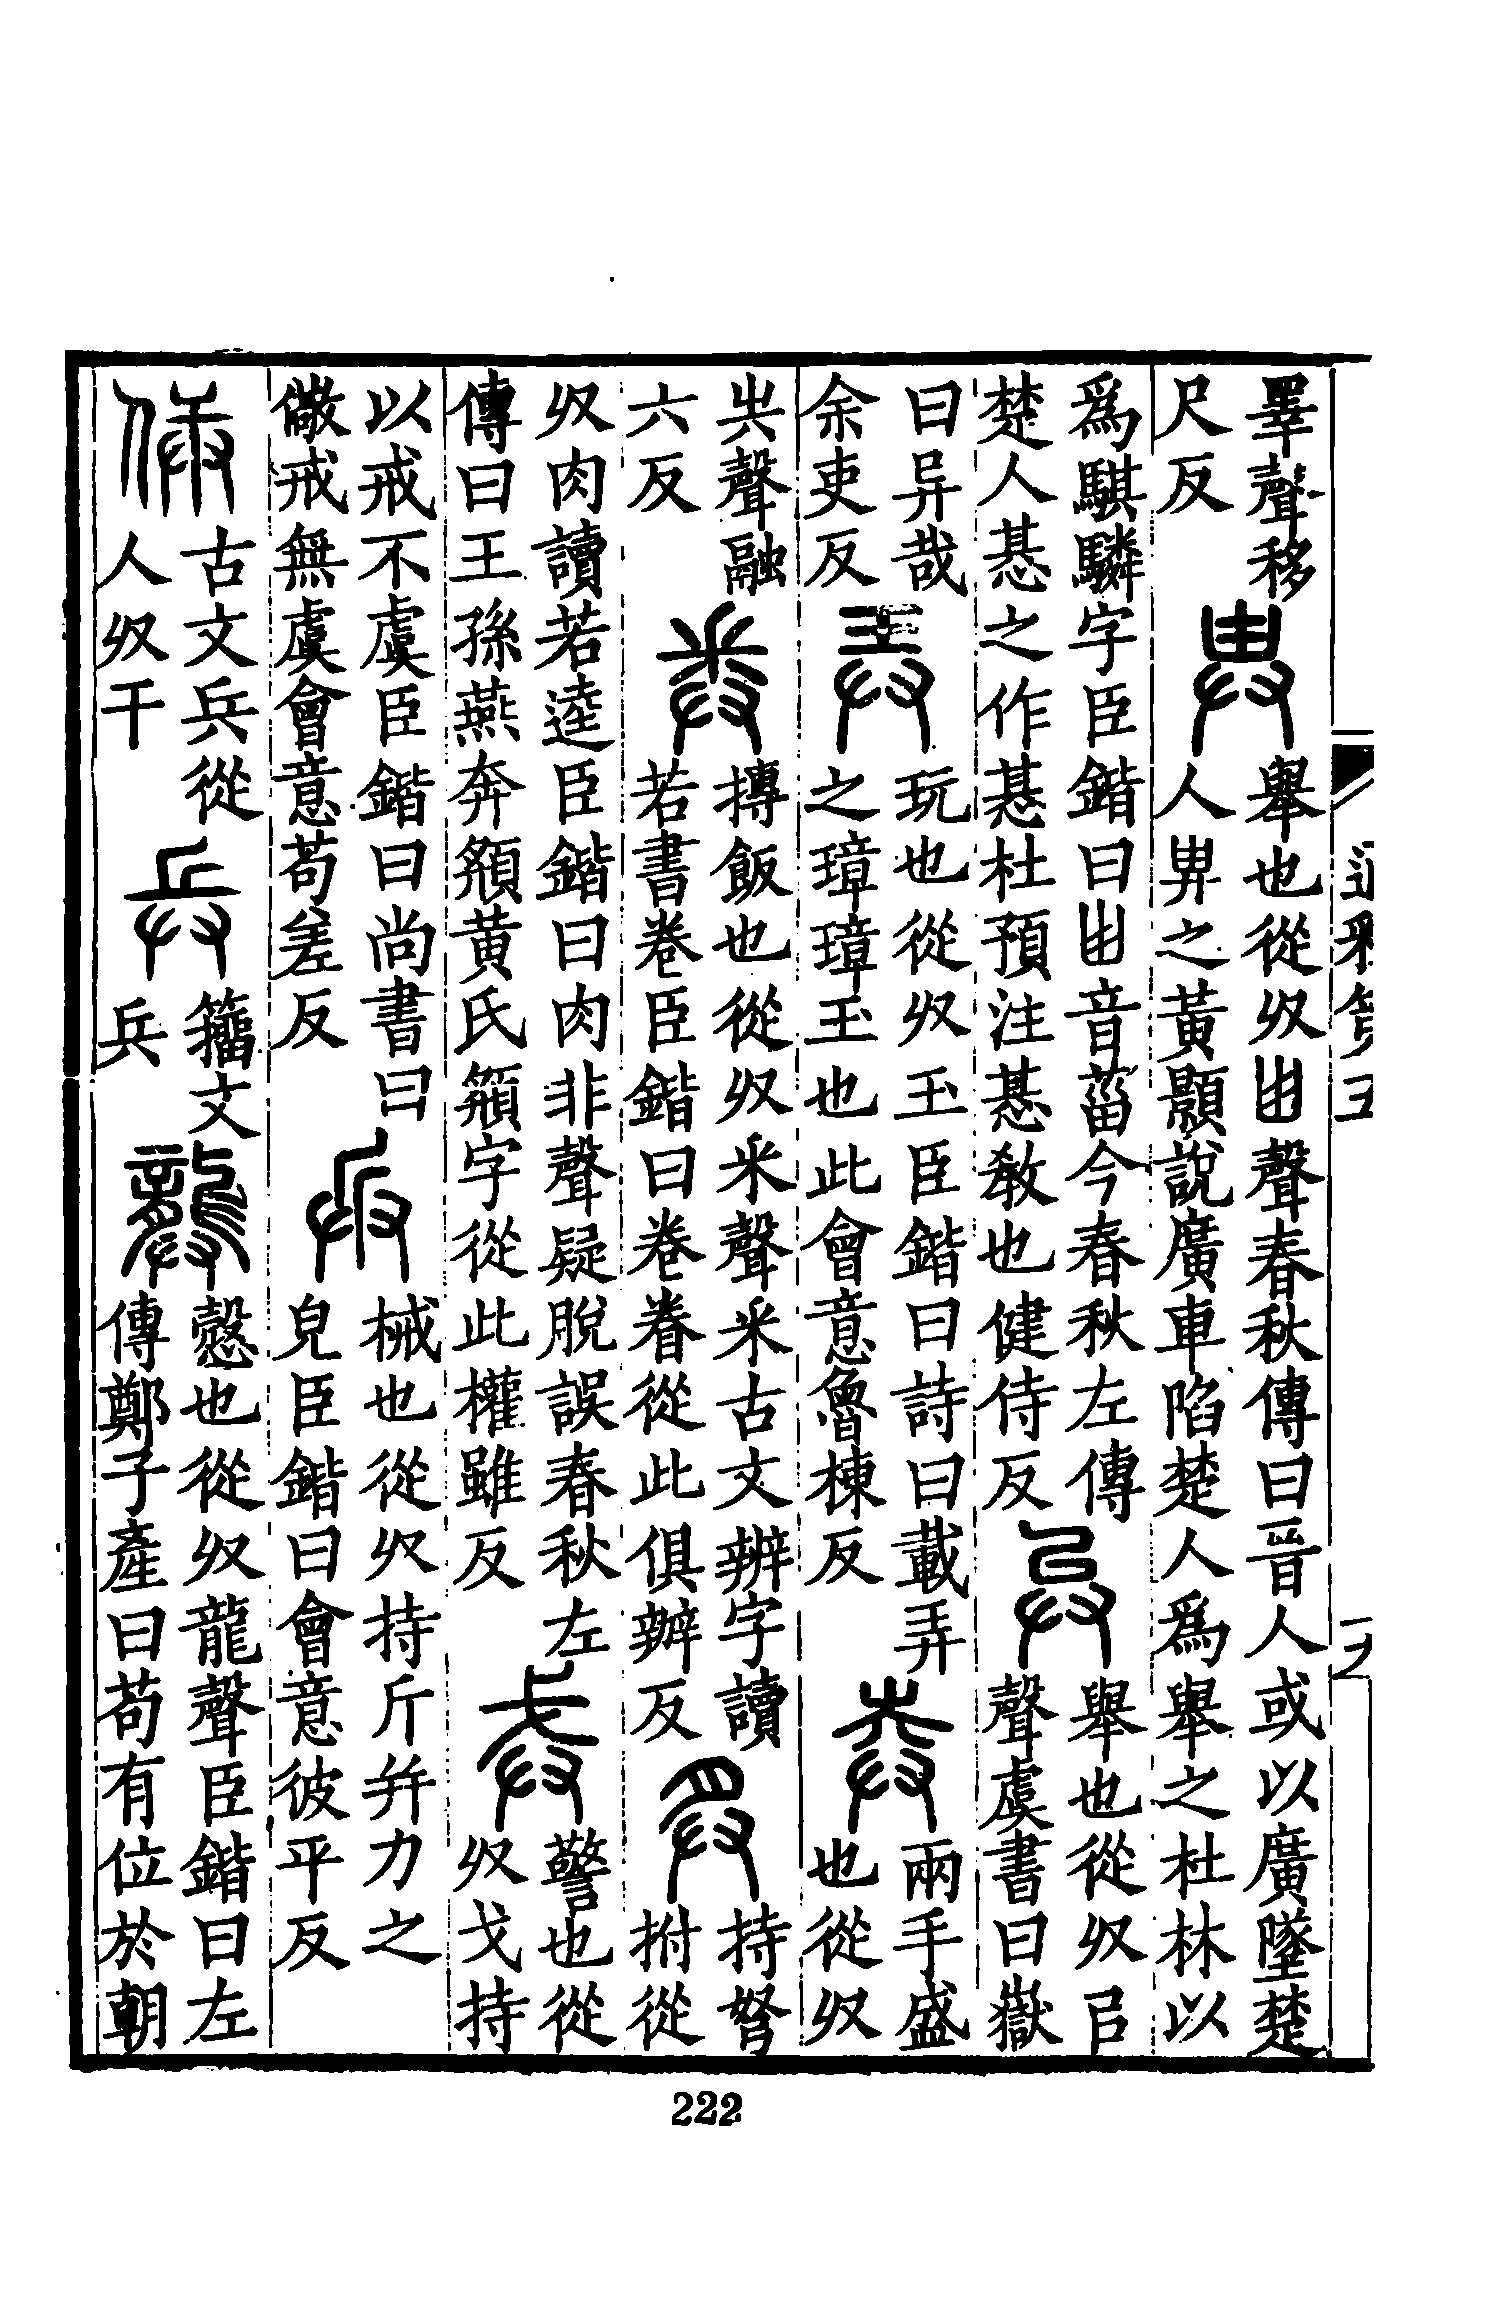 睪聲移
尺反
𢌿
舉也從𠬞甶聲春秋傳曰晉人或以廣墜楚
人𢌿之黃顥說廣車陷楚人爲舉之杜林以
爲騏驎字臣鍇曰甶音葘今春秋左傳
楚人惎之作惎杜預注惎敎也健侍反
异
舉也從𠬞㠯
聲虞書曰嶽
曰异哉
余吏反
弄
玩也從𠬞玉臣鍇曰詩曰載弄
之璋璋玉也此會意魯棟反
兩手盛
也從𠬞
𡴆聲融
六反
摶飯也從𠬞釆聲釆古文辨字讀
若書卷臣鍇曰卷眷從此俱辦反
持弩
拊從
𠬞肉讀若逵臣鍇曰肉非聲疑脫誤春秋左
傳曰王孫燕奔頯黃氏頯字從此權雖反
戒
警也從
𠬞戈持
以戒不虞臣鍇曰尚書曰
儆戒無虞會意苟差反
兵
械也從𠬞持斤并力之
皃臣鍇曰會意彼平反
𠈯
古文兵從
人𠬞干
兵
籒文
兵
龏
愨也從𠬞龍聲臣鍇曰左
傳鄭子產曰苟有位於朝
222